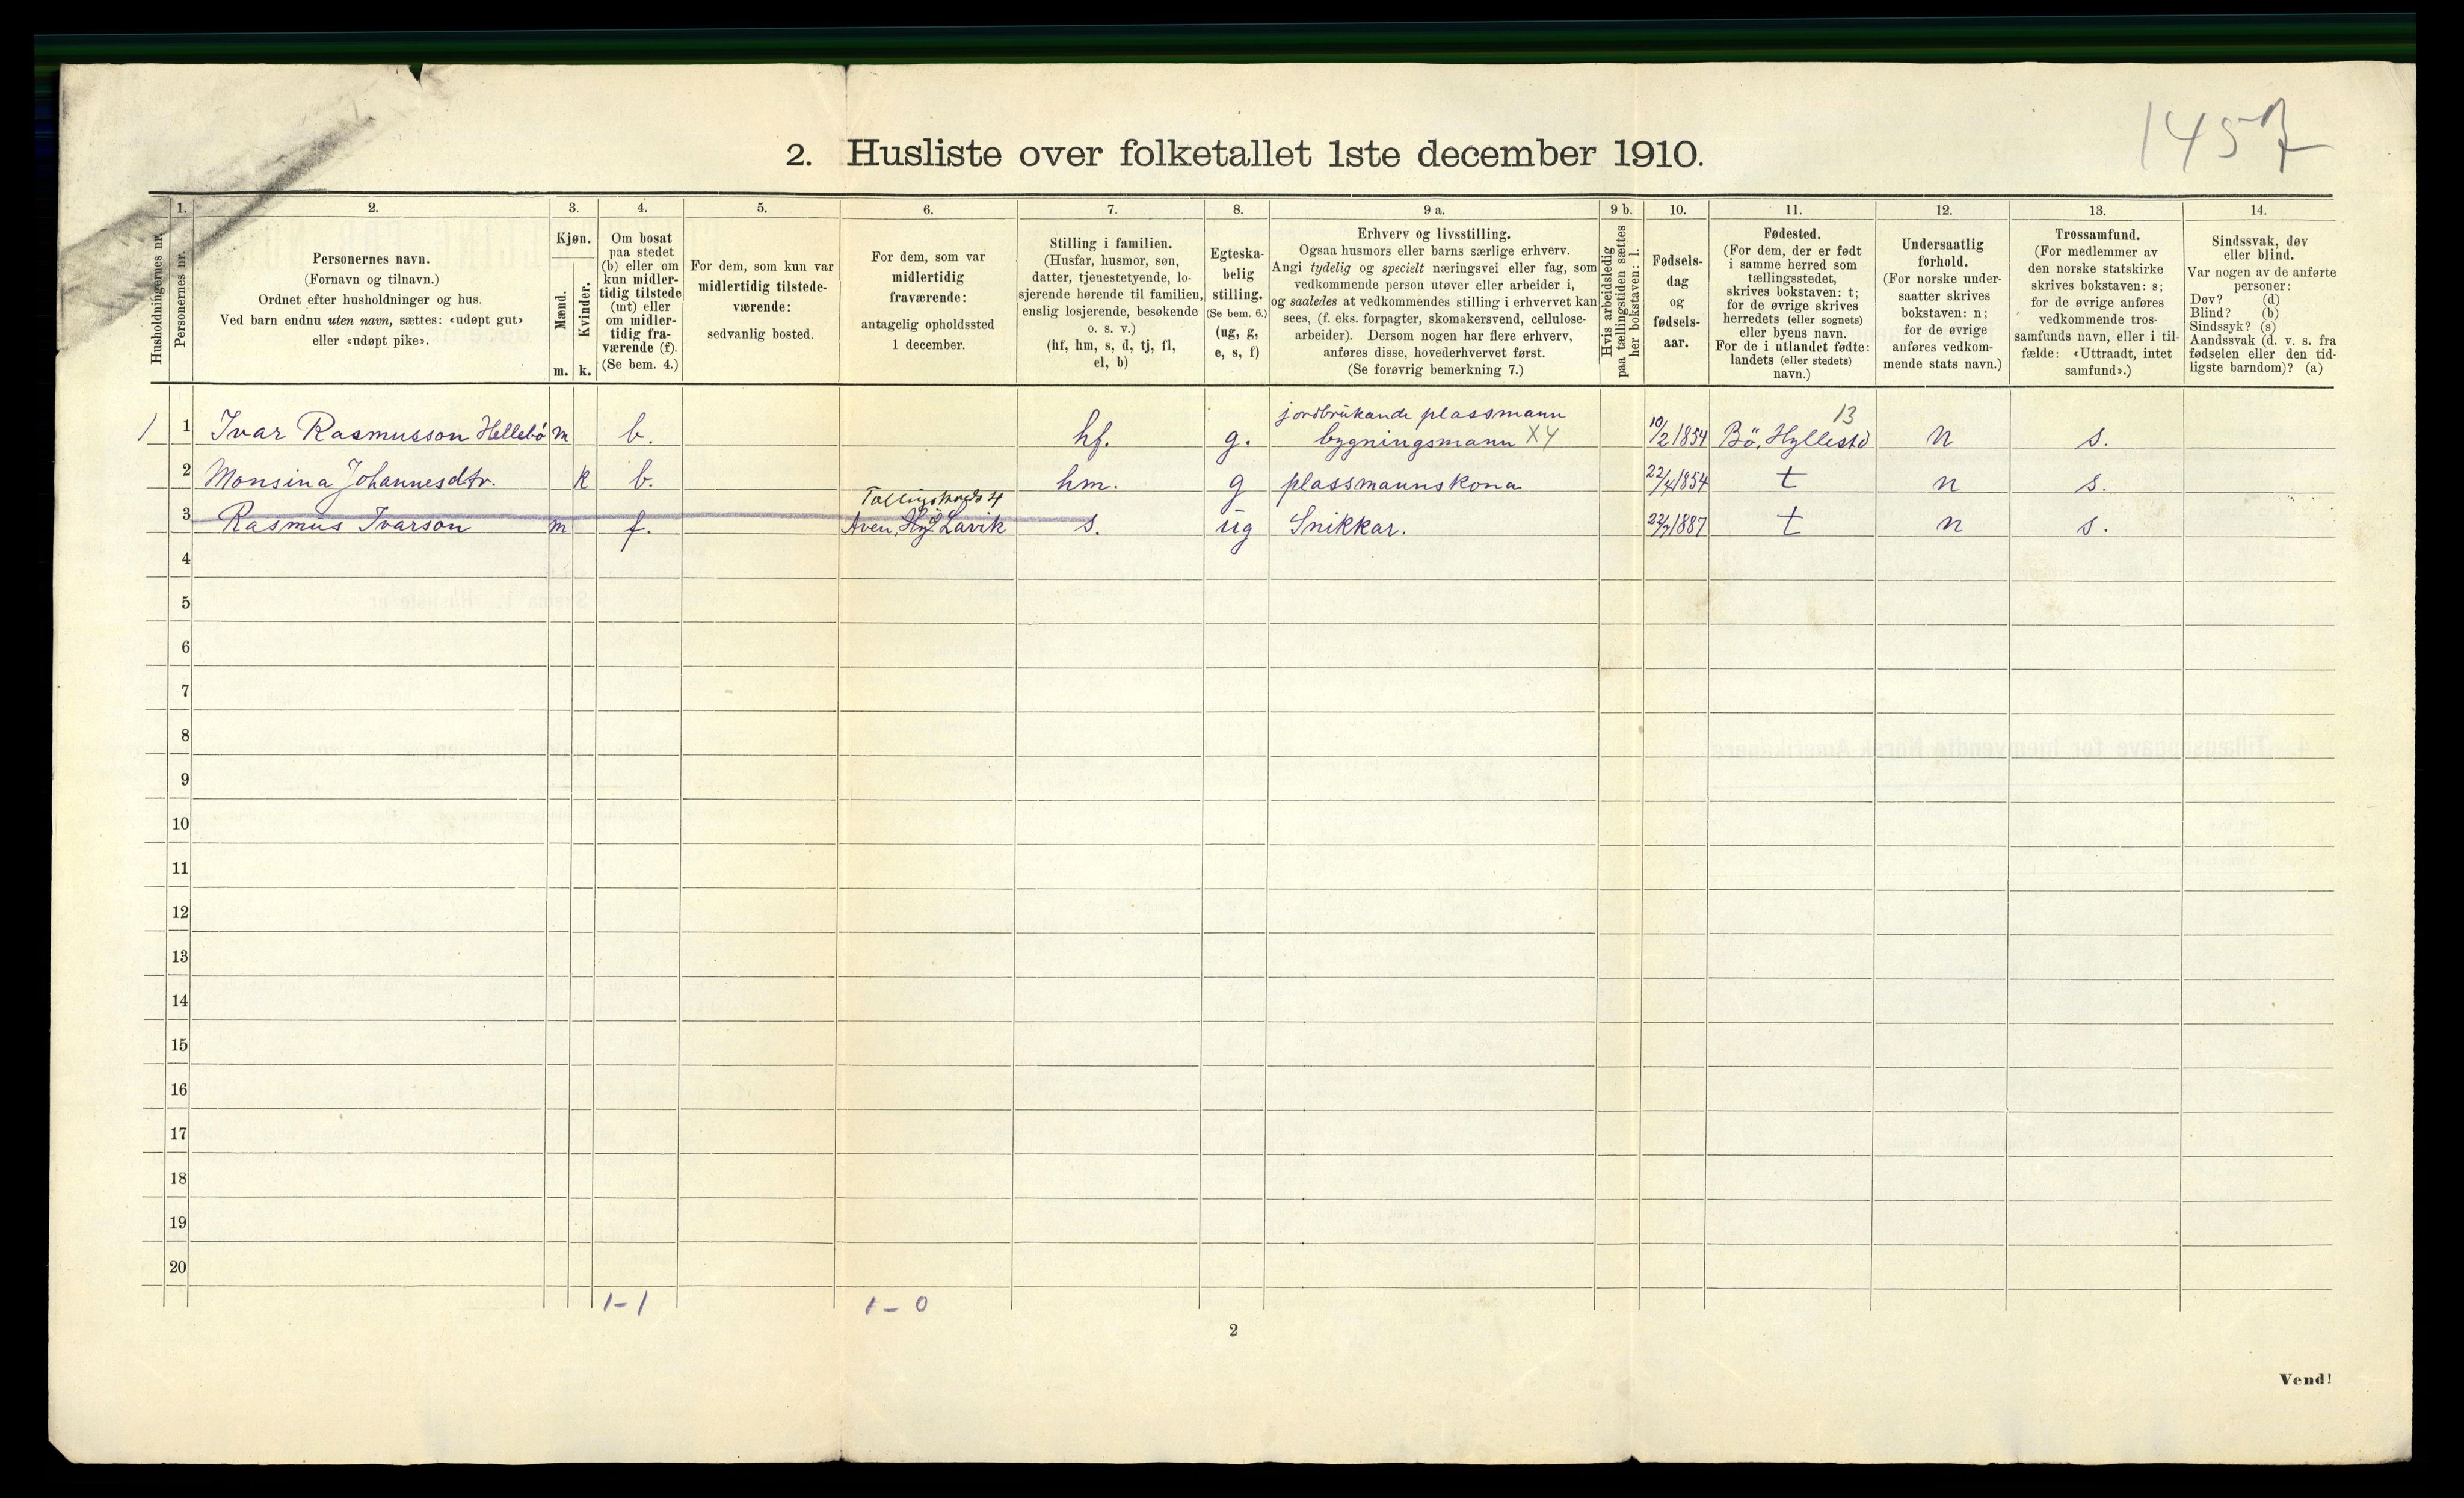 1457
2. Husliste over folketallet 1ste december 1910.
Husholdningernes nr.
1.
Personernes nr.
2.
Personernes navn.
(Fornavn og tilnavn.)
Ordnet efter husholdninger og hus.
Ved barn endnu uten navn, sættes: «udøpt gut»
eller «udøpt pike».
3.
Kjøn.
Mænd.
Kvinder.
m. k.
4.
Om bosat
paa stedet
(b) eller om
kun midler-
tidig tilstede
(mt) eller
om midler-
tidig fra-
værende (f).
(Se bem. 4.)
5.
For dem, som kun var
midlertidig tilstede-
værende:
sedvanlig bosted.
6.
For dem, som var
midlertidig
fraværende:
antagelig opholdssted
1 december.
7.
Stilling i familien.
(Husfar, husmor, søn,
datter, tjenestetyende, lo-
sjerende hørende til familien,
enslig losjerende, besøkende
o. s. v.)
(hf, hm, s, d, tj, fl,
el, b)
8.
Egteska-
belig
stilling.
(Se bem. 6.)
(ug, g,
e, s, f)
9 a.
Erhverv og livsstilling.
Ogsaa husmors eller barns særlige erhverv.
Angi tydelig og specielt næringsvei eller fag, som
vedkommende person utøver eller arbeider i,
og saaledes at vedkommendes stilling i erhvervet kan
sees, (f. eks. forpagter, skomakersvend, cellulose-
arbeider). Dersom nogen har flere erhverv,
anføres disse, hovederhvervet først.
(Se forøvrig bemerkning 7.)
9 b.
Hvis arbeidsledig
paa tællingstiden sættes
her bokstaven: l.
10.
Fødsels-
dag
og
fødsels-
aar.
11.
Fødested.
(For dem, der er født
i samme herred som
tællingsstedet,
skrives bokstaven: t;
for de øvrige skrives
herredets (eller sognets)
eller byens navn.
For de i utlandet fødte:
landets (eller stedets)
navn.)
12.
Undersaatlig
forhold.
(For norske under-
saatter skrives
bokstaven: n;
for de øvrige
anføres vedkom-
mende stats navn.)
13.
Trossamfund.
(For medlemmer av
den norske statskirke
skrives bokstaven: s;
for de øvrige anføres
vedkommende tros-
samfunds navn, eller i til-
fælde: «Uttraadt, intet
samfund».)
14.
Sindssvak, døv
eller blind.
Var nogen av de anførte
personer:
Døv? (d)
Blind? (b)
Sindssyk? (s)
Aandssvak (d. v. s. fra
fødselen eller den tid-
ligste barndom)? (a)
jordbrukande plassmann 13
1 1 Ivar Rasmusson Hellebö m b. hf. g. bygningsmann X4 10/2 1854 Bö, Hyllestd n s.
2 Monsina Johannesdtr. k b. hm. g plassmannskona 22/4 1854 t n s.
3 Rasmus Ivarson m f. Lavik s. ug Snikkar. 22/7 1887 t n s.
4
5
6
7
8
9
10
11
12
13
14
15
16
17
18
19
20
1-1 1-0
2
Vend!